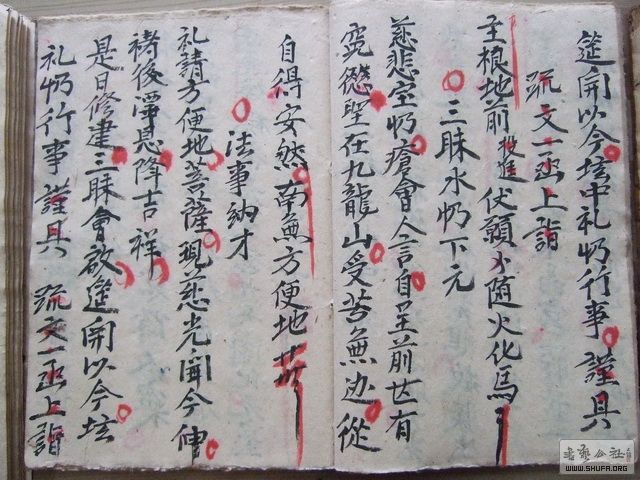 筵開以今坛中礼忏行事 謹具
疏文一函上詣
至根地前 投進 伏願 随火化馬
三昧水忏下元
慈悲宝忏瘡會今言自呈前世有
冤愆聖在九龍山受苦無边從
自得安然南無方便地
法事納才
礼請方便地菩薩現慈光開今伸
禇後霈恩降吉祥
是日修建三昧會啟筵開以今坛
礼忏行事 謹具 疏文一函上詣
書藝公社
WWW.SHUFA.ORG